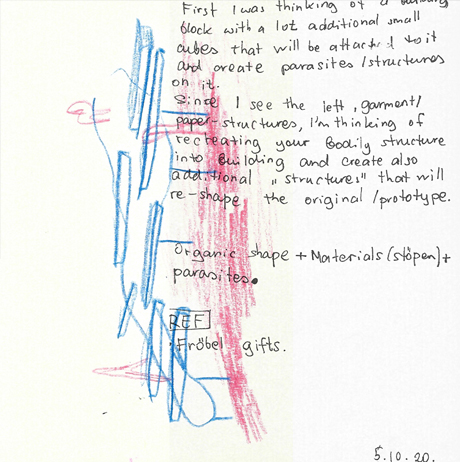 First I was thinking of a building
block with a lot additional small
cubes that will be attached to it
and create parasites/structures
on it.
Since I see the left, garment/
paper-structures, I'm thinking of
recreating your Bodily structure
into Building and create also
additional „structures" that will
re-shape the original/prototype.
Organic shape + Materials (stöpen)+
parasites.
REF
Fröbel gifts.
5.10.20.